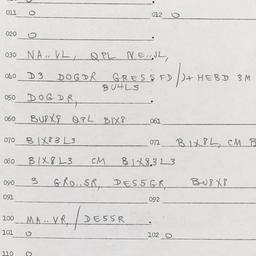 011 0 012 0
020 0
030 NA..VL, QPL NE..VL,
040 D3 DOGDR GRESSFD/)+ HEBD 3M
BU4LS
050 DOGDR,
060 BU8X8 QPL BIX8 061
070 BIX83L3 071 BIX8L, CM B
080 BIX8L3 CM BIX8,3L3
090 3 GRO..SR, DESSGR, BU8X8
091 092
100 MA..VR, / DESSR
101 0 102 0
110 0